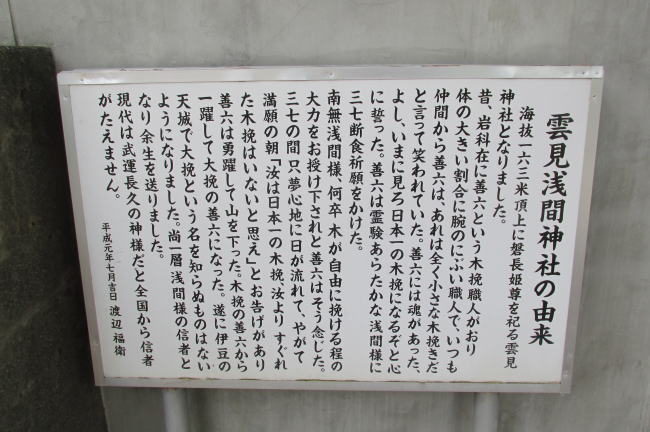 雲見浅間神社の由来
海抜一六三米頂上に磐長姫尊を祀る雲見
神社となりました。
昔、岩科在に善六という木挽職人がおり
体の大きい割合に腕のにぶい職人で、いつも
仲間から善六は、あれは全く小さな木挽きだ
と言って笑われていた。善六には魂があった、
よし、いまに見ろ日本一の木挽になるぞと心
に誓った。善六は霊験あらたかな浅間様に
三七断食祈願をかけた。
南無浅間様、何卒木が自由に挽ける程の
大力をお授け下されと善六はそう念じた。
三七の間只夢心地に日が流れて、やがて
満願の朝「汝は日本一の木挽、汝よりすぐれ
た木挽はいないと思え」とお告げがあり
善六は勇躍して山を下った。木挽の善六から
一躍して大挽の善六になった。遂に伊豆の
天城で大挽という名を知らぬものはない
ようになりました。尚一層浅間様の信者と
なり余生を送りました。
現代は武運長久の神様だと全国から信者
がたえません。
平成元年七月吉日 渡辺福衛